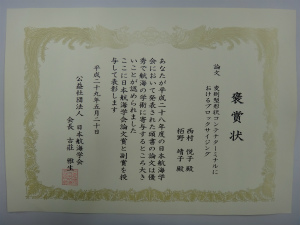 褒賞状
論文 変則型形状コンテナターミナルに
おけるブロックサイジング
西村 悦子殿
拓野 靖子殿
あなたが平成二十八年度の日本航海学
会において発表された頭書の論文は優
秀で航海の学術に寄与するところ大き
いことが認められました
ここに日本航海学会論文賞と副賞を授
与して表彰します
平成二十九年五月二十日
公益社団法人 日本航海学会
会長 古荘 雅生